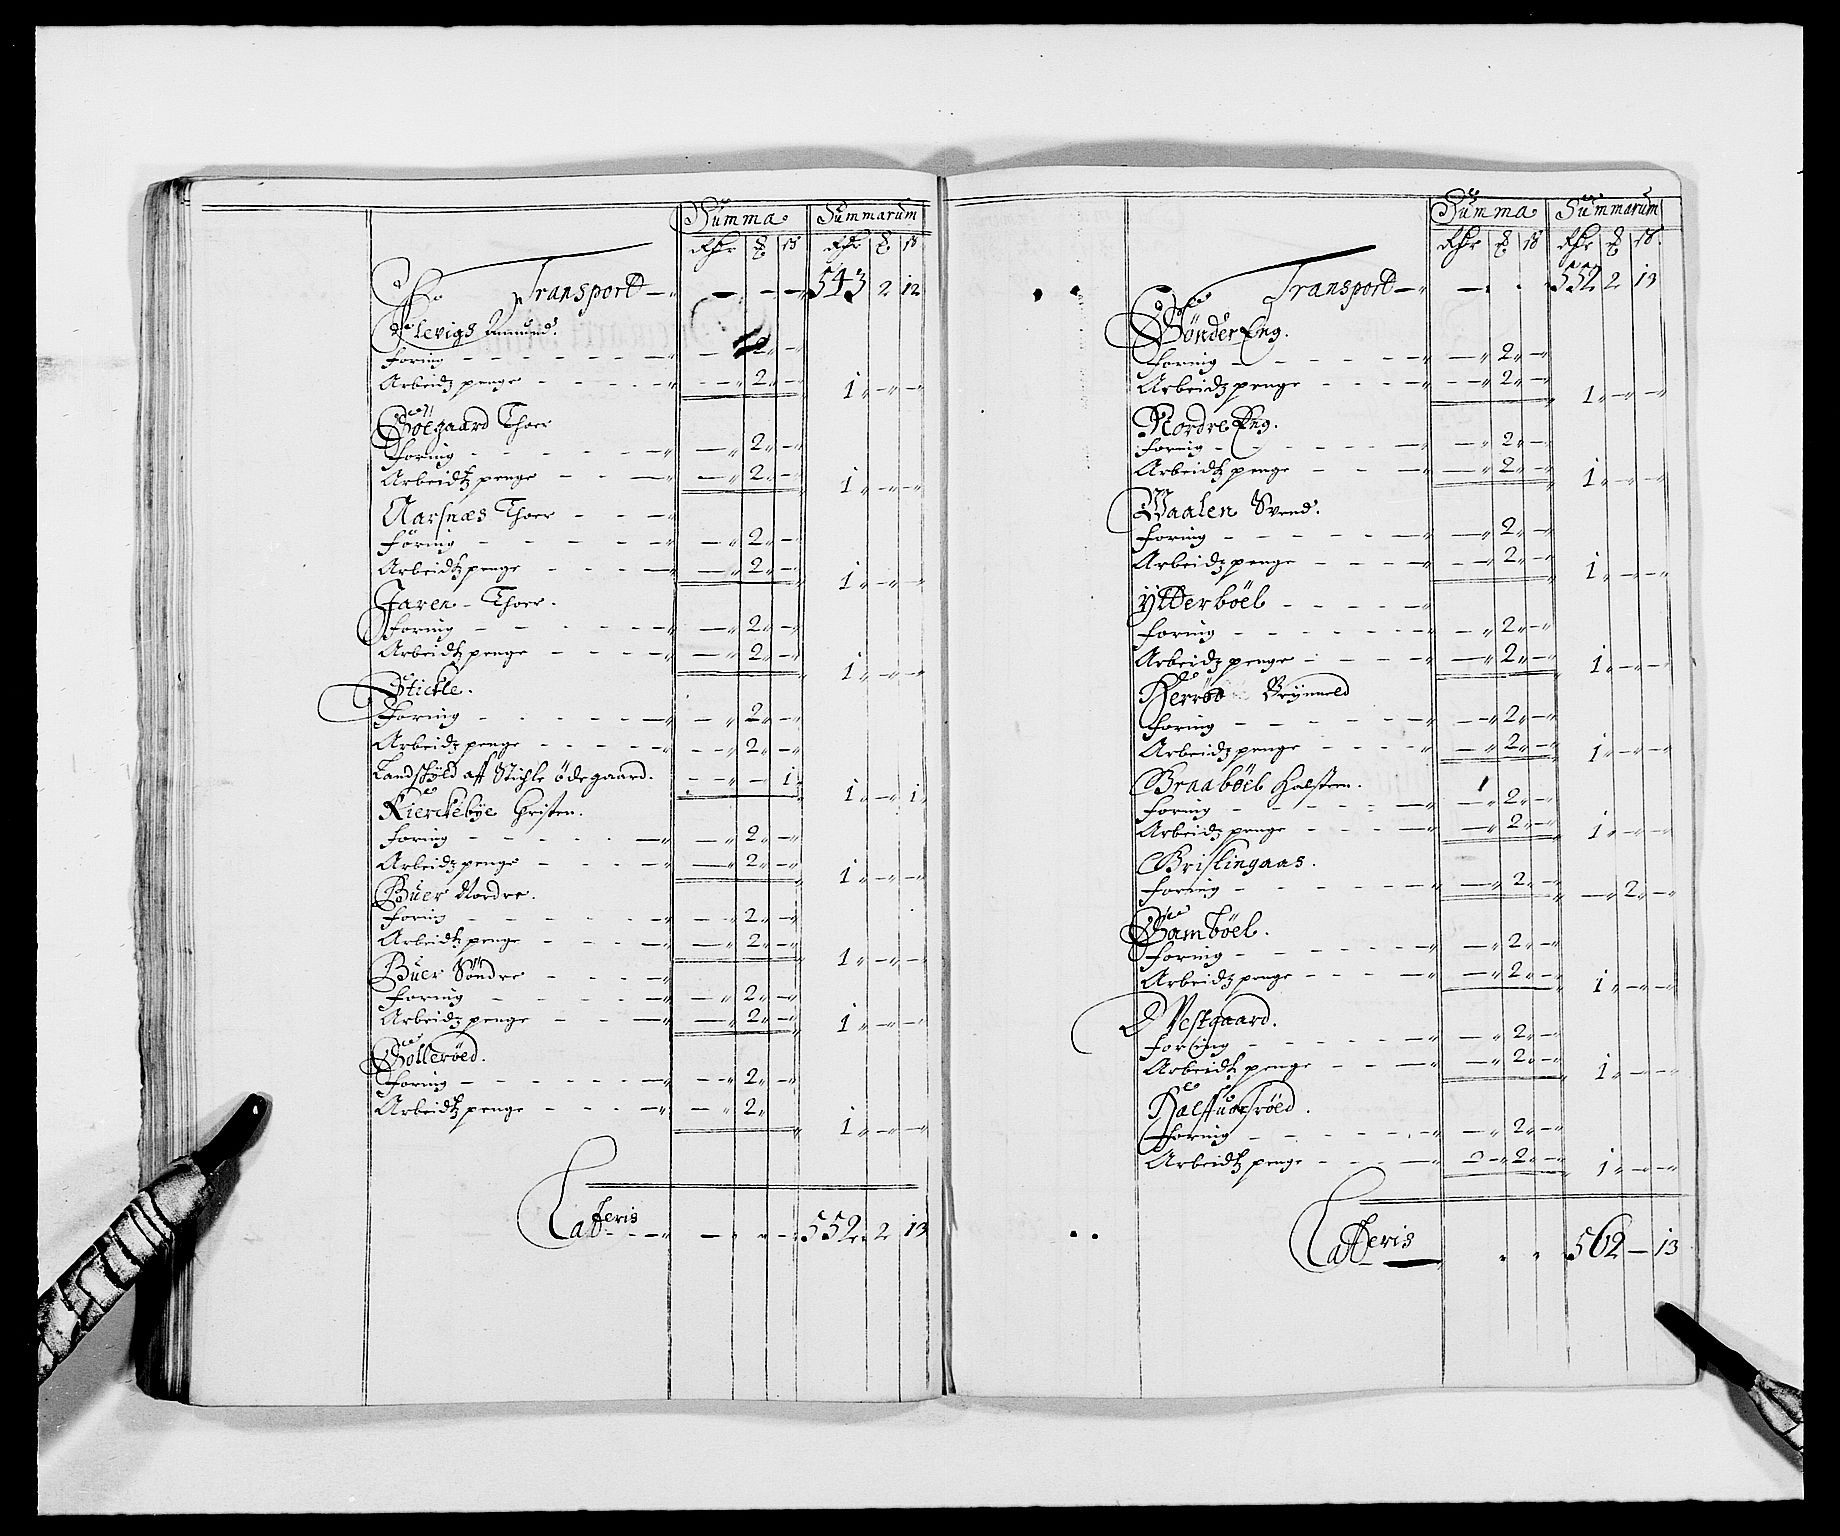 Summa Summarum
Rdr ß Rdr ß
Transport — 543 2 12
Klevigs Amund.
Foring — 2 —
Arbeidtz penge — 2 — 1 — —
Göegaard Thoer
Foring — 2 —
Arbeidtz penge — 2 — 1 — —
Aarsnæs Thoer
Föring — 2 —
Arbeidtz penge — 2 — 1 — —
Jaren Thoer.
Foring — 2 —
Arbeidtz penge — 2 — 1 — —
Stickle.
Foring — 2 —
Arbeidtz penge — 2 —
Landschÿld aff Stichle ödegaard. — — 1 1 — 1
Kierckebÿe Christen.
Foring — 2 —
Arbeidtz penge — 2 — 1 — —
Büer Nordre.
Foring — 2 —
Arbeidtz penge — 2 — 1 — —
Büer Söndre
Foring — 2 —
Arbeidtz penge — 2 — 1 — —
Golleröed.
Foring — 2 —
Arbeidtz penge — 2 1 — —
Latteris — 552 2 13
Summa Summarum
Rdr ß Rdr ß
Transport — 552 2 13
Sönder Eng.
Foring — 2 —
Arbeidtz penge — 2 — 1 — —
Nordre Eng.
Foring — 2 —
Arbeidtz penge — 2 — 1 — —
Waalen Svend.
Foring — 2 —
Arbeidtz penge — 2 — 1 — —
Ÿtterböel
Foring — 2 —
Arbeidtz penge — 2 — 1 — —
Herröe Brÿnneld
Foring — 2 —
Arbeidtz penge — 2 — 1 — —
Braaböel Halsteen.
Foring — 2 —
Arbeidtz penge — 2 — 1 — —
Brislingaas.
Foring — 2 — — 2 —
Gamböel.
Foring — 2 —
Arbeidtz penge — 2 — 1 — —
Westgaard.
Foring — 2 —
Arbeidtz penge — 2 — 1 — —
Foring — 2 —
Arbeidtz penge — 2 — 1 — —
Latteris 562 — 13